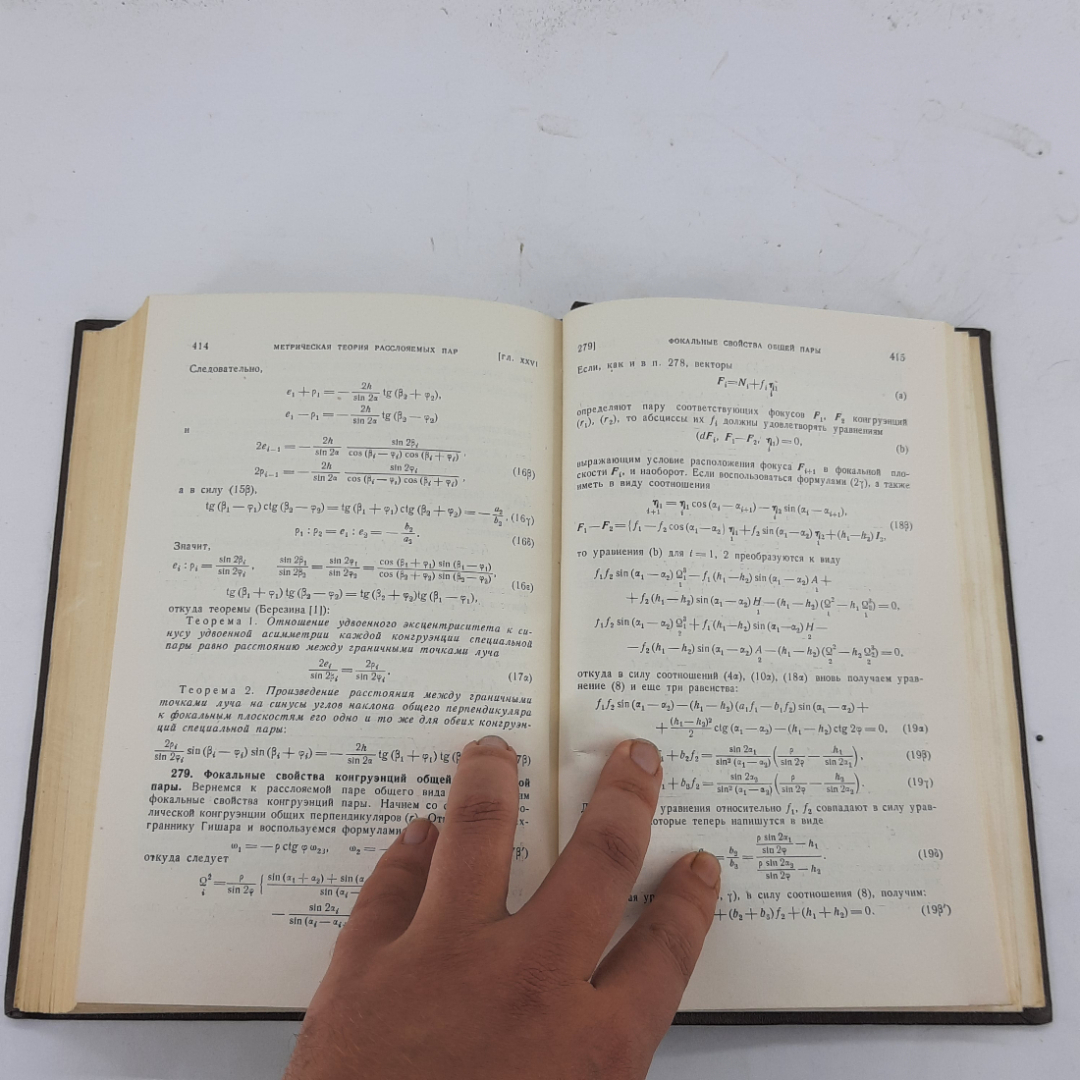 414
МЕТРИЧЕСКАЯ ТЕОРИЯ РАССЛОЯЕМЫХ ПАР
[ГЛ. XXVI
Следовательно,
e₁ + ρ₁ = − 2h/sin 2α tg (β₂ + φ₂),
e₁ − ρ₁ = − 2h/sin 2α tg (β₂ − φ₂)
и
2e_{i−1} = − 2h/sin 2α · sin 2β_i/cos (β_i − φ_i) cos (β_i + φ_i),
2ρ_{i−1} = − 2h/sin 2α · sin 2φ_i/cos (β_i − φ_i) cos (β_i + φ_i), (16β)
а в силу (15β),
tg (β₁ − φ₁) ctg (β₂ − φ₂) = tg (β₁ + φ₁) ctg (β₂ + φ₂) = − a₂/b₂, (16γ)
ρ₁ : ρ₂ = e₁ : e₂ = − b₂/a₂. (16δ)
Значит,
e_i : ρ_i = sin 2β_i/sin 2φ_i, sin 2β₁/sin 2β₂ = sin 2φ₁/sin 2φ₂ = cos (β₁ + φ₁) sin (β₁ − φ₁)/cos (β₂ + φ₂) sin (β₂ − φ₂),
tg (β₁ + φ₁) tg (β₂ − φ₂) = tg (β₂ + φ₂) tg (β₁ − φ₁), (16ε)
откуда теоремы (Березина [1]):
Теорема 1. Отношение удвоенного эксцентриситета к си-
нусу удвоенной асимметрии каждой конгруэнции специальной
пары равно расстоянию между граничными точками луча
2e_i/sin 2β_i = 2ρ_i/sin 2φ_i. (17α)
Теорема 2. Произведение расстояния между граничными
точками луча на синусы углов наклона общего перпендикуляра
к фокальным плоскостям его одно и то же для обеих конгруэн-
ций специальной пары:
2ρ_i/sin 2φ_i sin (β_i − φ_i) sin (β_i + φ_i) = − 2h/sin 2α tg (β₁ + φ₁) tg (β
279. Фокальные свойства конгруэнций общей
пары. Вернемся к расслояемой паре общего вида
фокальные свойства конгруэнций пары. Начнем со
лической конгруэнции общих перпендикуляров
граннику Гишара и воспользуемся формулами
ω₁ = − ρ ctg φ ω₂₃, ω₂ = −
откуда следует
Ω²_i = ρ/sin 2φ { sin (α₁ + α₂) + sin (α
− sin 2α_i
279]
ФОКАЛЬНЫЕ СВОЙСТВА ОБЩЕЙ ПАРЫ
415
Если, как и в п. 278, векторы
F_i = N_i + f_i η₁ (a)
определяют пару соответствующих фокусов F₁, F₂ конгруэнций
(r₁), (r₂), то абсциссы их f_i должны удовлетворять уравнениям
(dF_i, F₁ − F₂, η₁) = 0, (b)
выражающим условие расположения фокуса F_{i+1} в фокальной пло-
скости F_i, и наоборот. Если воспользоваться формулами (2γ), а также
иметь в виду соотношения
η₁ = η₁ cos (α_i − α_{i+1}) − η₂ sin (α_i − α_{i+1}),
F₁ − F₂ = {f₁ − f₂ cos (α₁ − α₂)} η₁ + f₂ sin (α₁ − α₂) η₂ + (h₁ − h₂) I₂, (18β)
то уравнения (b) для i = 1, 2 преобразуются к виду
f₁f₂ sin (α₁ − α₂) Ω²₁ − f₁ (h₁ − h₂) sin (α₁ − α₂) A +
+ f₂ (h₁ − h₂) sin (α₁ − α₂) H − (h₁ − h₂) (Ω² − h₁ Ω³₂) = 0,
f₁f₂ sin (α₁ − α₂) Ω²₁ + f₁ (h₁ − h₂) sin (α₁ − α₂) H −
− f₂ (h₁ − h₂) sin (α₁ − α₂) A − (h₁ − h₂) (Ω² − h₂ Ω³₂) = 0,
откуда в силу соотношений (4α), (10α), (18α) вновь получаем урав-
нение (8) и еще три равенства:
f₁f₂ sin (α₁ − α₂) − (h₁ − h₂) (a₁f₁ − b₁f₂) sin (α₁ − α₂) +
+ (h₁ − h₂)²/2 ctg (α₁ − α₂) − (h₁ − h₂) ctg 2φ = 0, (19α)
+ b₂f₂ = sin 2α₁/sin² (α₁ − α₂) (ρ/sin 2φ − h₁/sin 2α₁), (19β)
+ b₃f₂ = sin 2α₂/sin² (α₁ − α₂) (ρ/sin 2φ − h₂/sin 2α₂). (19γ)
уравнения относительно f₁, f₂ совпадают в силу урав-
которые теперь напишутся в виде
= b₂/b₃ = (ρ sin 2α₁/sin 2φ − h₁)/(ρ sin 2α₂/sin 2φ − h₂). (19δ)
γ), в силу соотношения (8), получим:
+ (b₂ + b₃) f₂ + (h₁ + h₂) = 0. (19β′)